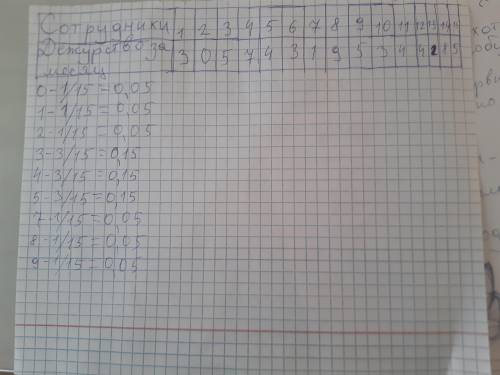 Сотрудники 1 2 3 4 5 6 7 8 9 10 11 12 13 14 15
Дежурство за
месяц 3 0 5 7 4 3 1 9 5 3 4 4 2 8 5
0-1/15=0,05
1-1/15=0,05
2-1/15=0,05
3-3/15=0,15
4-3/15=0,15
5-3/15=0,15
7-1/15=0,05
8-1/15=0,05
9-1/15=0,05